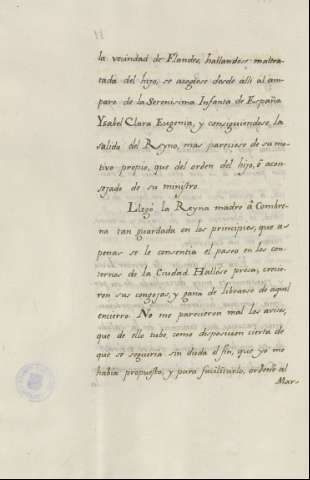 la vecindad de Flandes, hallandose maltra-
tada del hijo, se acogiese desde alli al am-
paro de la Serenisima Infanta de España
Ysabel Clara Eugenia, y consiguiendose, la
salida del Reyno, mas pareciese de su mo-
tivo propio, que del orden del hijo, ô acon-
sejado de su ministro.
Llegó la Reyna madre â Combre-
na tan guardada en los principios, que a-
penas se le consentia el paseo en los con-
tornos de la Ciudad. Hallóse presa, crecie-
ron sus congojas, y gana de librarse de aquel
encierro. No me parecieron mal los avisos,
que de ello tube, como disposicion cierta de
que se seguiria sin duda el fin, que yo me
habia propuesto, y para facilitarlo, ordené al
Mar-